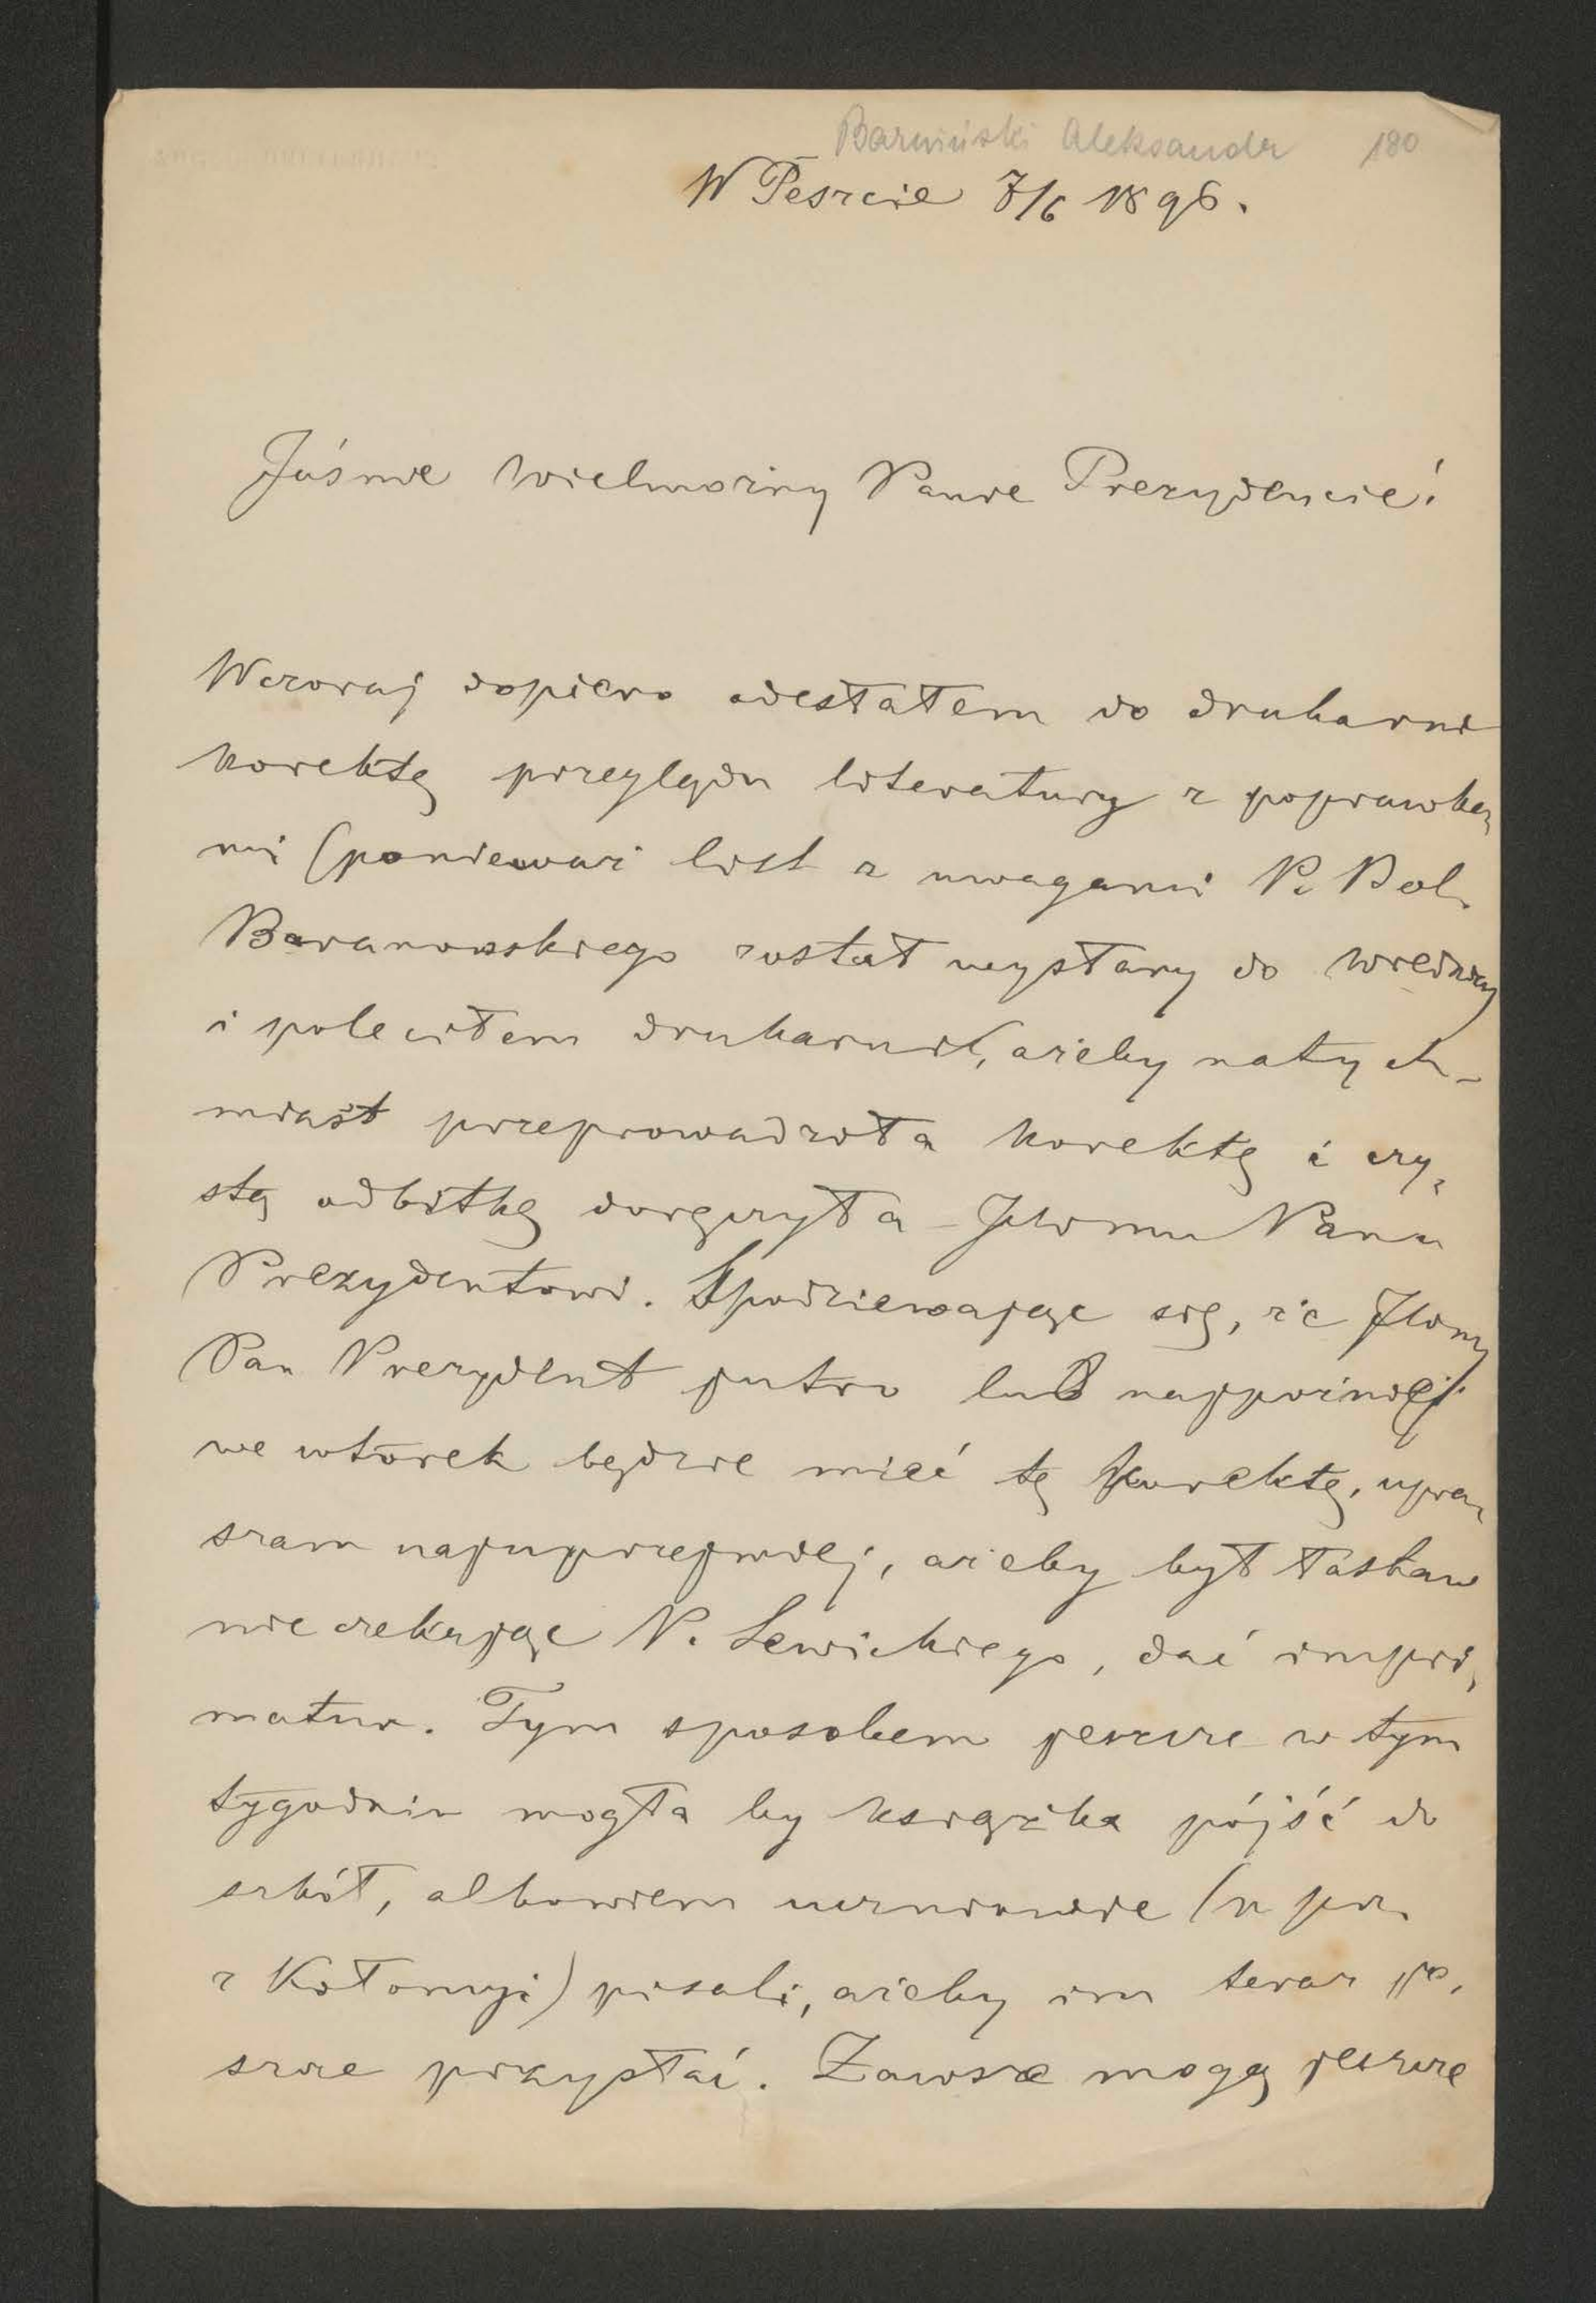 Barwiński Aleksander 180
W Peszcie 7/6 1896.
Jaśnie Wielmożny Panie Prezydencie!
Wczoraj dopiero odesłałem do drukarni
korektę przeglądu literatury z poprawka,
mi (ponieważ list z uwagami P. Bol.
Baranowskiego został wysłany do Wiednia)
i poleciłem drukarni, ażeby natych-
miast przeprowadziła korektę i czy,
stą odbitkę doręczyła JWmu Panu
Prezydentowi. Spodziewając się, że JWny
Pan Prezydent jutro lub najpóźniej
we wtorek będzie mieć tę korektę, upra,
szam najuprzejmiej, ażeby był łaskaw
nie czekając P. Lewickiego, dać impri,
matur. Tym sposobem jeszcze w tym
tygodniu mogła by książka pójść do
szkół, albowiem uczniowie (n pr.
z Kołomyi) pisali, ażeby im teraz je,
szcze przysłać. Zawsze mogą jeszcze